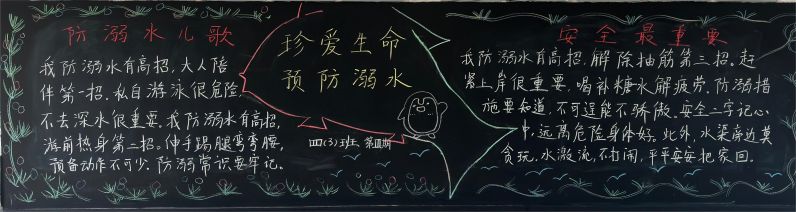 防溺水儿歌
我防溺水有高招，大人陪
伴第一招。私自游泳很危险，
不去深水很重要。我防溺水有高招，
游前热身第二招。伸手踢腿弯弯腰，
预备动作不可少。防溺常识要牢记。
珍爱生命
预防溺水
四(3)班 第四期
安全最重要
我防溺水有高招，解除抽筋第三招。赶
紧上岸很重要，喝补糖水解疲劳。防溺措
施要知道，不可逞能不骄傲。安全二字记心
中，远离危险身体好。此外，水渠旁边莫
贪玩，水激流，不打闹，平平安安把家回。